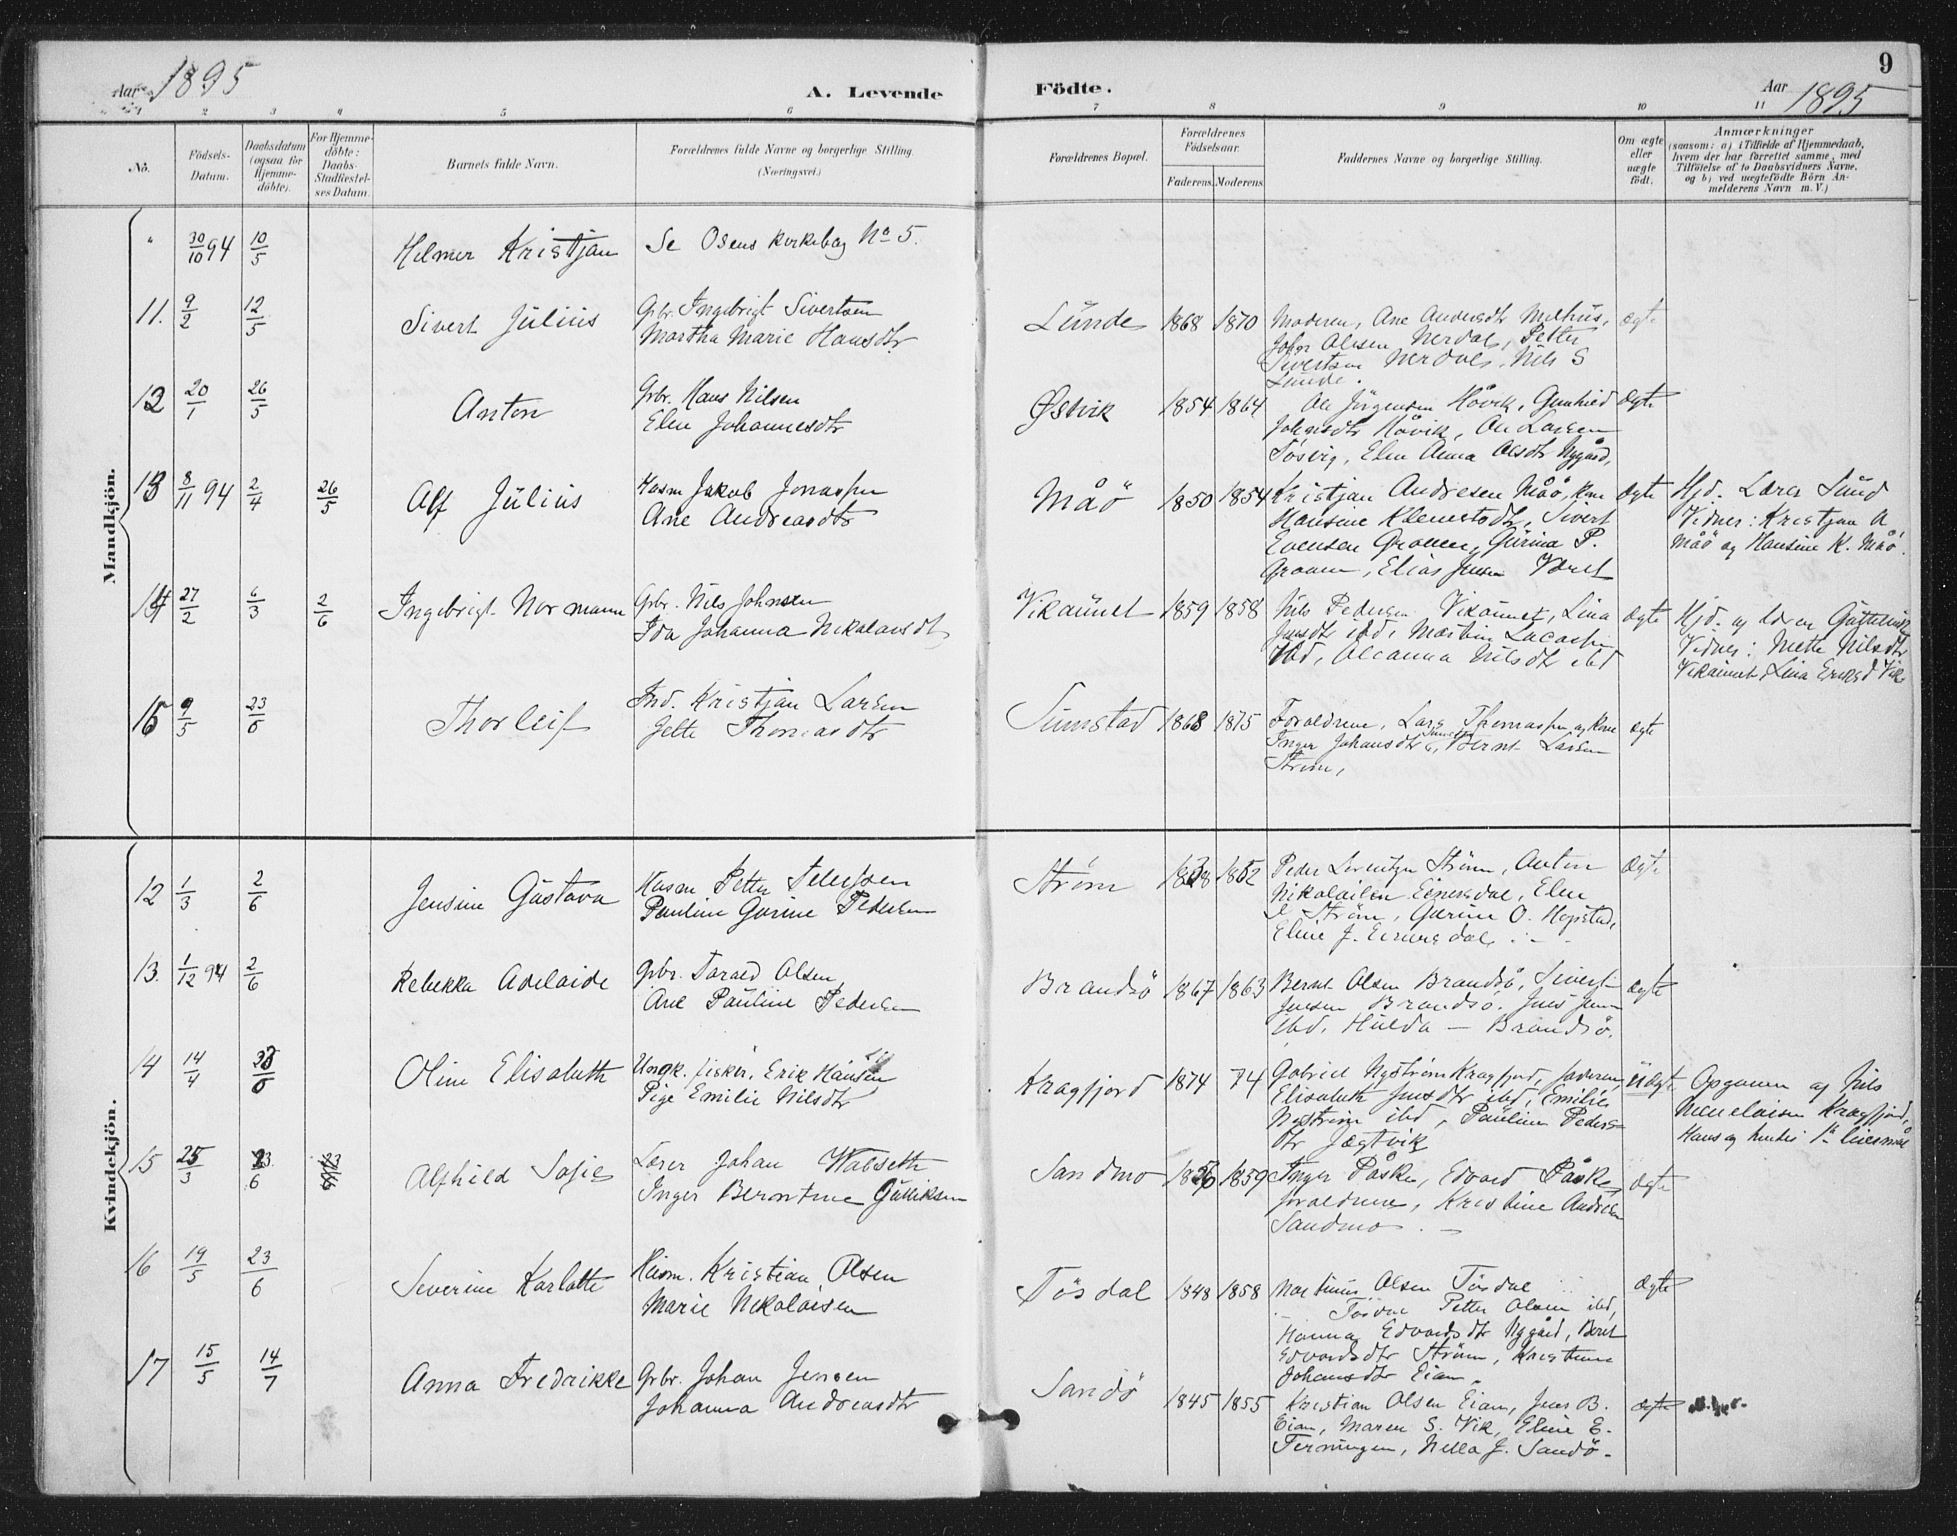 Aar 1895
A. Levende
Födte.
9
Aar 1895
1 2 3 4 5 6 7 8 9 10 11
No.
Födsels-
Datum.
Daabsdatum
(ogsaa for
Hjemme-
döbte).
For Hjemme-
döbte:
Daabs-
Stadfæstel-
ses Datum.
Barnets fulde Navn.
Forældrenes fulde Navne og borgerlige Stilling.
(Næringsvei.)
Forældrenes Bopæl.
Forældrenes
Födselsaar.
Faderens. Moderens.
Faddernes Navne og borgerlige Stilling.
Om ægte
eller
uægte
födt.
Anmærkninger
(saasom: a) i Tilfælde af Hjemmedaab,
hvem der har forrettet samme, med
Tilföielse af to Daabsvidners Navne,
og b) ved uægtefödte Börn An-
melderens Navn m. V.)
Mandkjön.
" 30/10 94 10/5 Helmer Kristjan Se Osens kirkebog No 5.
11. 9/2 12/5 Sivert Julius
Gbr. Ingebrigt Sivertsen
Martha Marie Hansdtr.
Lunde 1868 1870
Moderen, Ane Andersdtr Melhus,
Johan Olssen Nerdal, Petter
Sivertsen Nerdal, Nils S
Lunde.
ægte
12 20/1 26/5 Anton
Gbr. Hans Nilsen
Elen Johannesdtr
Østvik 1854 1864
Ole Jörgensen Hövik, Gunhild
Johnsdtr Hövik, Ole Larsen
Tösvig, Elen Anna Olsdtr Nygård,
ægte
13 8/11 94 2/4 26/5 Alf Julius
Husm Jakob Jonassen
Ane Andreasdtr
Måö 1850 1854
Kristjan Andresen Måö, kone
Hansine Klemetsdtr, Sivert
Evensen Groven, Gurina P.
Groven, Elias Jensen Været
ægte
Hjd. Lærer Sund
Vidner: Kristjan A
Måö og Hansine K. Måö.
14 27/2 6/3 2/6 Ingebrigt Normann
Gbr. Nils Johnsen
Ida Johanna Nikolaisdtr
Vikaunet 1859 1858
Nils Pedersen Vikaunet, Lina
Jensdtr ibd, Martin
ibd, Oleanna Nilsdtr ibd
ægte
Hjd. og
Vidner: Mette Nilsdtr
Vikaunet, Lina Eriksd Vik
15 9/5 23/6 Thorleif
Ind. Kristjan Larsen
Jette Thomasdtr
Sumstad 1868 1875
Forældrene, Lars Thomassen og kone
Inger Johansdtr Sumstad, Bernt Larsen
Ström,
ægte
Kvindekjön.
12 1/3 2/6 Jensine Gustava
Husm Petter
Pauline Gurine Pedersen
Ström 1862
Peder Lorentzen Ström, Anton
Nikolaisen Einersdal, Elen
Ström, Gurine O. Hepstad,
Eline J. Einersdal
ægte
13. 1/12 94 2/6 Rebekka Adelaide
Gbr. Tarald Olsen
Ane Pauline Pedersen
Brandsö 1867 1863
Bernt Olsen Brandsö, Sivert
Jensen Brandsö, Jens Jensen
ibd. Hulda — Brandsö.
ægte
14 14/4 Oline Elisabeth
Ungk. fisker, Erik Hansen
Pige Emilie Nilsdtr
Kragfjord 1874 74
Gabriel Nyström Kragfjord, faderen,
Elisabeth Jensdtr ibd, Emilie
Nyström ibd, Pauline Peders-
dtr Jægtvik
uægte
Opgaven af Nils
Kragfjord,
15 25/3 23/6 Alfhild Sofie
Lærer Johan Walseth
Inger Berntine Gulliksen
Sandmo 1859
Inger Påske, Edvard Påske,
forældrene, Kristine Andresen
Sandmo.
ægte
16 19/5 23/6 Severine Karlotte
Husm. Kristian Olsen
Marie Nikolaisen
Tösdal 1848 1858
Martinus Olsen Tösdal
Tösdal Petter Olsen ibd,
Hanna Edvardsdtr Nygård, Beret
Edvardsdtr Ström, Kristine
Johansdtr Eian.
ægte
17 15/5 14/7 Anna Fredrikke
Gbr. Johan Jensen
Johanna Andreasdtr
Sandö 1845 1855
Kristian Olsen Eian, Jens B.
Eian, Maren S. Vik, Eline E.
Terningen, Nella J. Sandö.
ægte